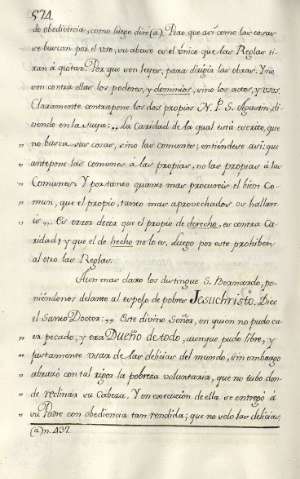 574.
de obediencia, como luego dire (a). Pero, que así como las cosas
se buscan por el uso, su abuso es el único que las Reglas ti-
ran á quitar. Por que son leyes, para dirigir las obras. Y no
ven contra ellas los poderes, y dominios, sino los actos, y usos.
Claramente contrapone los dos propios N. P. S. Agustin, di-
ciendo en la suya: ,, La Caridad de la qual está escrito, que
,, no busca sus cosas, sino las comunes, entiendese asi: que
,, antepone las comunes á las propias, no las propias á las
,, Comunes. Y por tanto quanto mas procurareis el bien Co-
,, mun, que el propio, tanto mas aprovechados os hallareis
,, Es error decir que el propio de derecho, es contra Ca-
ridad; y que el de hecho no lo es, luego por este prohiben
al otro las Reglas.
Aun mas claro los distingue S. Bernardo, po-
niendonos delante al espejo de pobres Jesuchristo. Dice
el Santo Doctor: ,, Este divino Señor, en quien no pudo ca-
,, ver pecado, y era Dueño de todo, aunque pudo libre, y
,, justamente usar de las delicias del mundo, sin embargo
,, abrazó con tal rigor la pobreza voluntaria, que no tubo don-
,, de reclinar su Cabeza. Y en execucion de ella se entregó á
,, su Padre con obediencia tan rendida; que no solo las delicias
(a) n. 437.